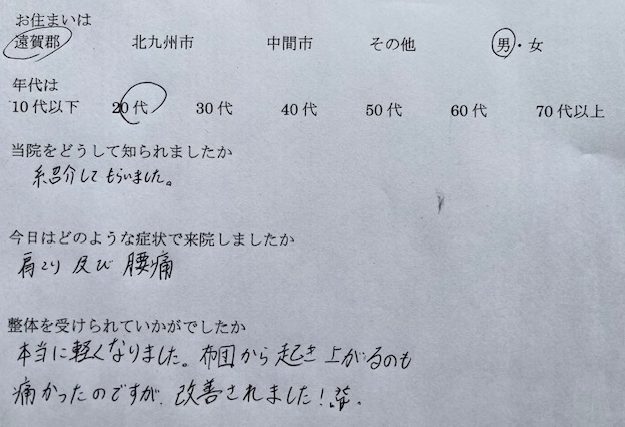 お住まいは
遠賀郡 北九州市 中間市 その他 男・女
年代は
10代以下 20代 30代 40代 50代 60代 70代以上
当院をどうして知られましたか
紹介してもらいました。
今日はどのような症状で来院しましたか
肩こり 及び 腰痛
整体を受けられていかがでしたか
本当に軽くなりました。布団から起き上がるのも
痛かったのですが、改善されました!